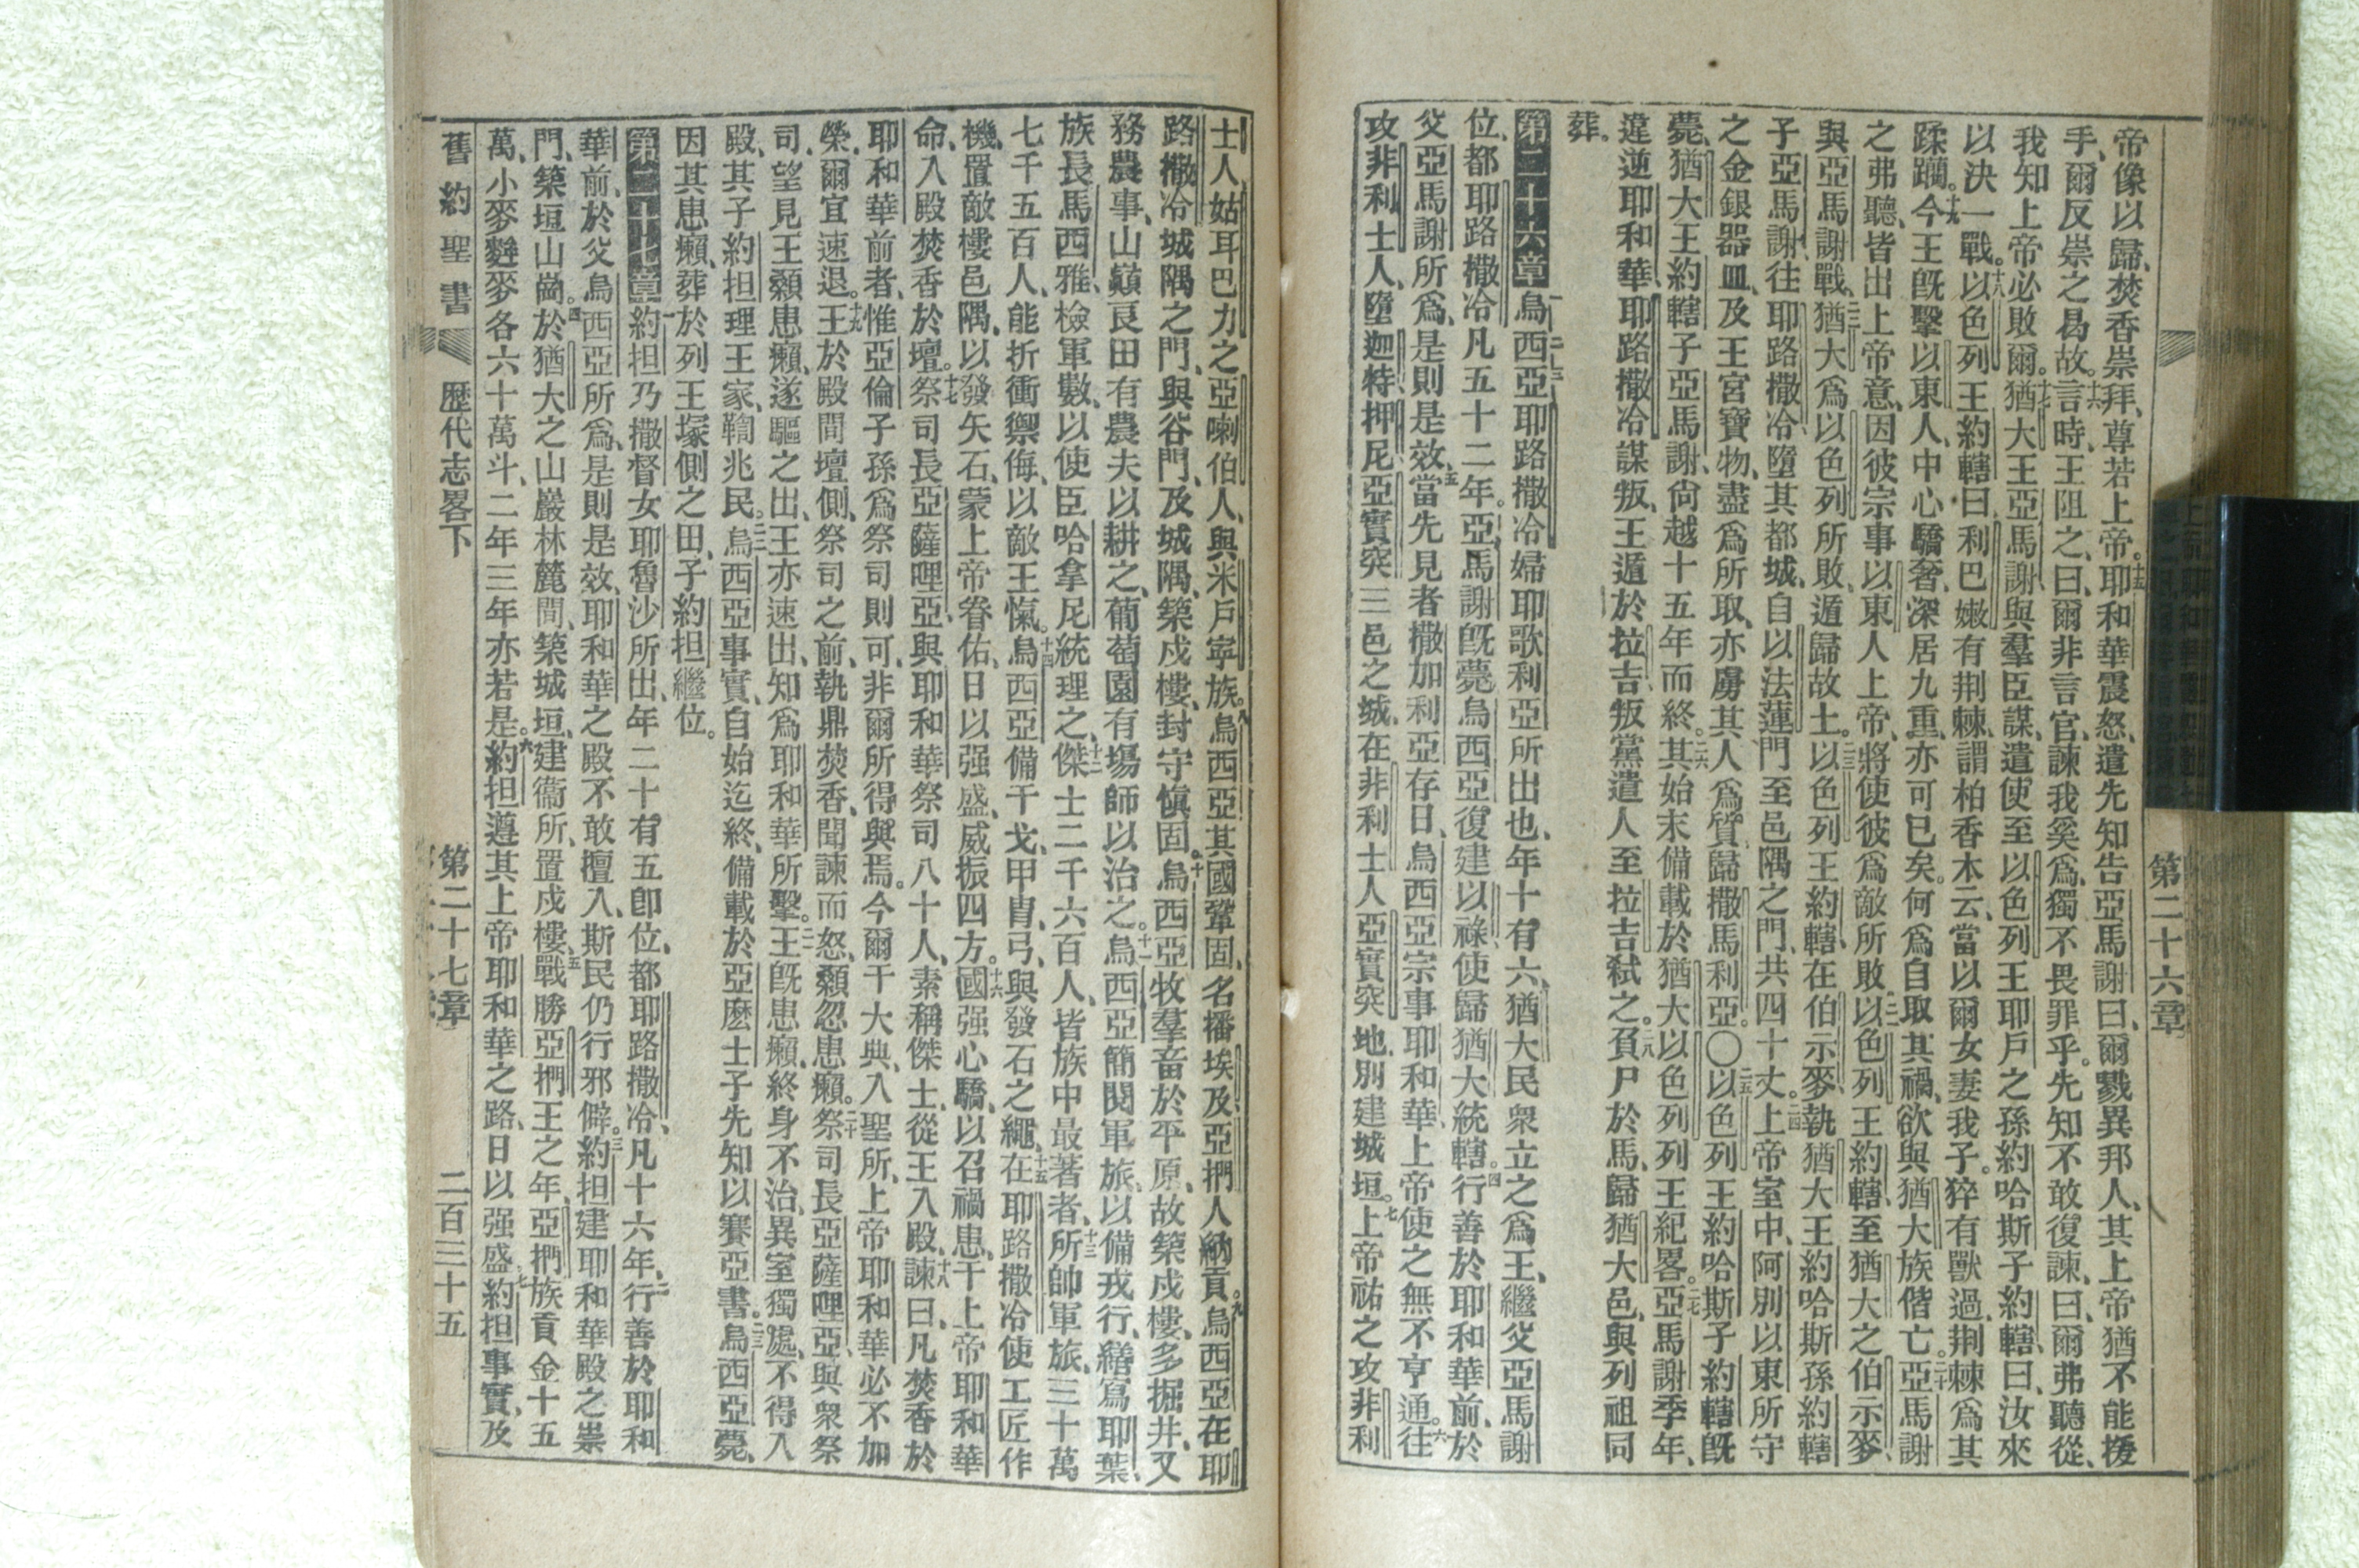 第二十六章
帝像以歸、焚香崇拜、尊若上帝。十五耶和華震怒、遣先知告亞馬謝曰、爾戮異邦人、其上帝猶不能援
手、爾反崇之曷故。十六言時、王阻之、曰、爾非言官、諫我奚爲、獨不畏罪乎。先知不敢復諫、曰、爾弗聽從、
我知上帝必敗爾。十七猶大王亞馬謝與羣臣謀、遣使至以色列王耶戶之孫約哈斯子約轄、曰、汝來
以決一戰。十八以色列王約轄曰、利巴嫩有荆棘、謂柏香木云、當以爾女妻我子。猝有獸過、荆棘爲其
蹂躪。十九今王旣擊以東人、中心驕奢、深居九重、亦可已矣。何爲自取其禍、欲與猶大族偕亡。二十亞馬謝
之弗聽、皆出上帝意、因彼宗事以東人上帝、將使彼爲敵所敗、二一以色列王約轄、至猶大之伯示麥、
與亞馬謝戰、二二猶大爲以色列所敗、遁歸故土。二三以色列王約轄在伯示麥、執猶大王約哈斯孫約轄
子亞馬謝、往耶路撒冷、墮其都城、自以法蓮門至邑隅之門、共四十丈。二四上帝室中、阿別以東所守
之金銀器皿、及王宮寶物、盡爲所取、亦虜其人爲質、歸撒馬利亞。〇二五以色列王約哈斯子約轄旣
薨、猶大王約轄子亞馬謝、尙越十五年而終。二六其始末備載於猶大以色列列王紀畧。二七亞馬謝季年、
違逆耶和華、耶路撒冷謀叛、王遁於拉吉、叛黨遣人至拉吉弒之。二八負尸於馬、歸猶大邑、與列祖同
葬。
第二十六章 一烏西亞耶路撒冷婦耶歌利亞所出也、年十有六、猶大民衆立之爲王、繼父亞馬謝
位、都耶路撒冷凡五十二年。亞馬謝旣薨、烏西亞復建以祿、使歸猶大統轄。四行善於耶和華前、於
父亞馬謝所爲、是則是效、五當先見者撒加利亞存日、烏西亞宗事耶和華上帝、使之無不亨通。六往
攻非利士人、墮迦特、押尼、亞實突三邑之城、在非利士人亞實突地、別建城垣。七上帝祐之攻非利
士人、姑耳巴力之亞喇伯人、與米戶寧族。八烏西亞其國鞏固、名播埃及、亞捫人納貢。九烏西亞在耶
路撒冷城隅之門、與谷門、及城隅、築戍樓、封守愼固。十烏西亞牧羣畜於平原、故築戍樓、多掘井、又
務農事、山巔良田有農夫以耕之、葡萄園有塲師以治之。十一烏西亞簡閱軍旅、以備戎行、繕寫耶葉、
族長馬西雅、檢軍數、以使臣哈拿尼統理之、十二傑士二千六百人、皆族中最著者、十三所帥軍旅、三十萬
七千五百人、能折衝禦侮、以敵王愾。十四烏西亞備干戈、甲冑、弓、與發石之繩、十五在耶路撒冷使工匠作
機、置敵樓邑隅、以發矢石、蒙上帝眷佑、日以强盛、威振四方。十六國强心驕、以召禍患、干上帝耶和華
命、入殿焚香於壇。十七祭司長亞薩哩亞、與耶和華祭司八十人、素稱傑士、從王入殿、十八諫曰、凡焚香於
耶和華前者、惟亞倫子孫爲祭司則可、非爾所得與焉。今爾干大典、入聖所、上帝耶和華必不加
榮、爾宜速退。十九王於殿間壇側、祭司之前、執鼎焚香、聞諫而怒、顙忽患癩。二十祭司長亞薩哩亞、與衆祭
司、望見王顙患癩、遂驅之出、王亦速出、知爲耶和華所擊。二一王旣患癩、終身不治、異室獨處、不得入
殿、其子約担理王家、鞫兆民。二二烏西亞事實、自始迄終、備載於亞麽士子先知以賽亞書。二三烏西亞薨、
因其患癩、葬於列王塚側之田、子約担繼位。
第二十七章 一約担乃撒督女耶魯沙所出、年二十有五卽位、都耶路撒冷、凡十六年、二行善於耶和
華前、於父烏西亞所爲、是則是效、耶和華之殿不敢擅入、斯民仍行邪僻。三約担建耶和華殿之崇
門、築垣山崗。四於猶大之山巖林麓間、築城垣、建衞所、置戍樓、五戰勝亞捫王之年、亞捫族貢金十五
萬、小麥麰麥各六十萬斗、二年三年亦若是。六約担遵其上帝耶和華之路、日以强盛、七約担事實、及
舊約聖書 歷代志畧下 第二十七章 二百三十五